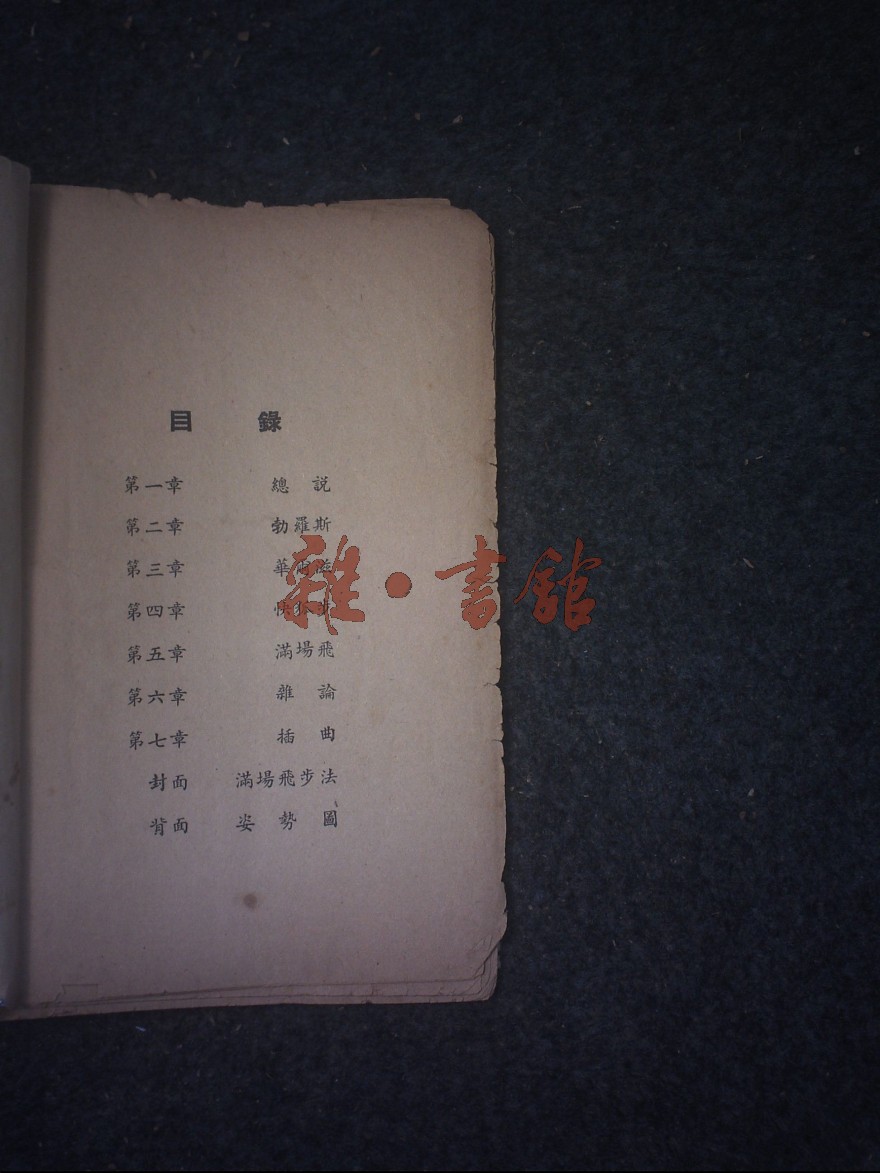 目 錄
第一章 總說
第二章 勃羅斯
第三章 華爾滋
第四章 快狐步
第五章 滿場飛
第六章 雜論
第七章 插曲
封面 滿場飛步法
背面 姿勢圖
雜·書館